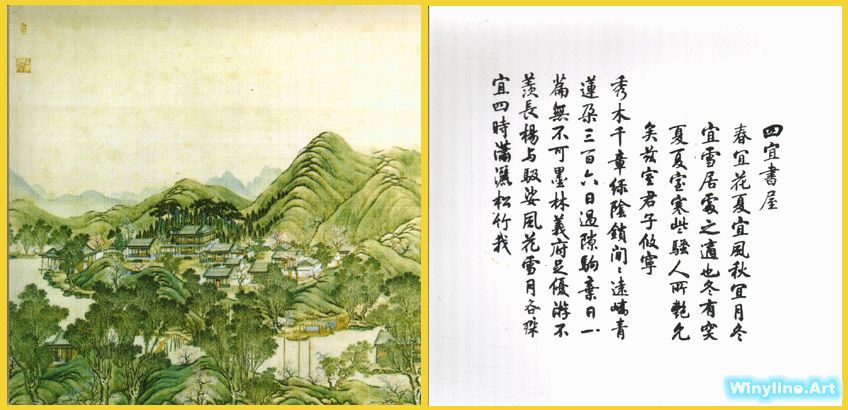 四宜書屋
春宜花夏宜風秋宜月冬
宜雪居處之適也冬有突
夏夏室寒些騷人所艷允
矣茲室君子攸寧
秀木千章綠陰鎖間〻遠嶠青
蓮朵三百六日過隙駒棄日一
篇無不可墨林義府足優游不
羨長楊与馺娑風花雪月各殊
宜四時瀟灑松竹我
Winyline.Art